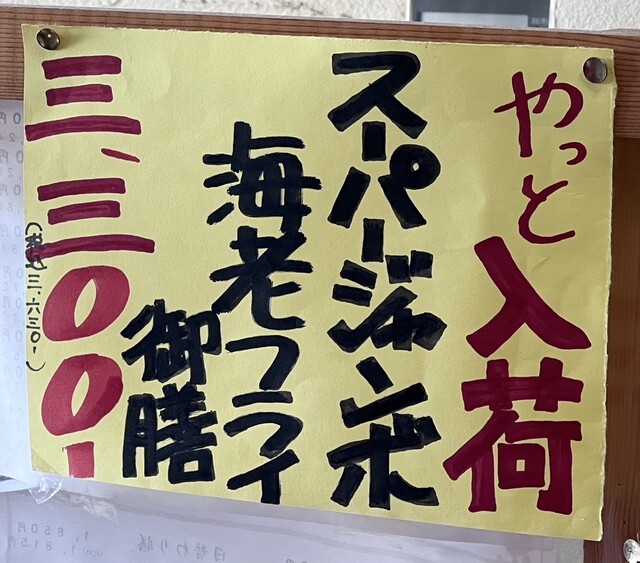 やっと入荷
スーパージャンボ
海老フライ
御膳
三、三〇〇-
(税込三、六三〇-)